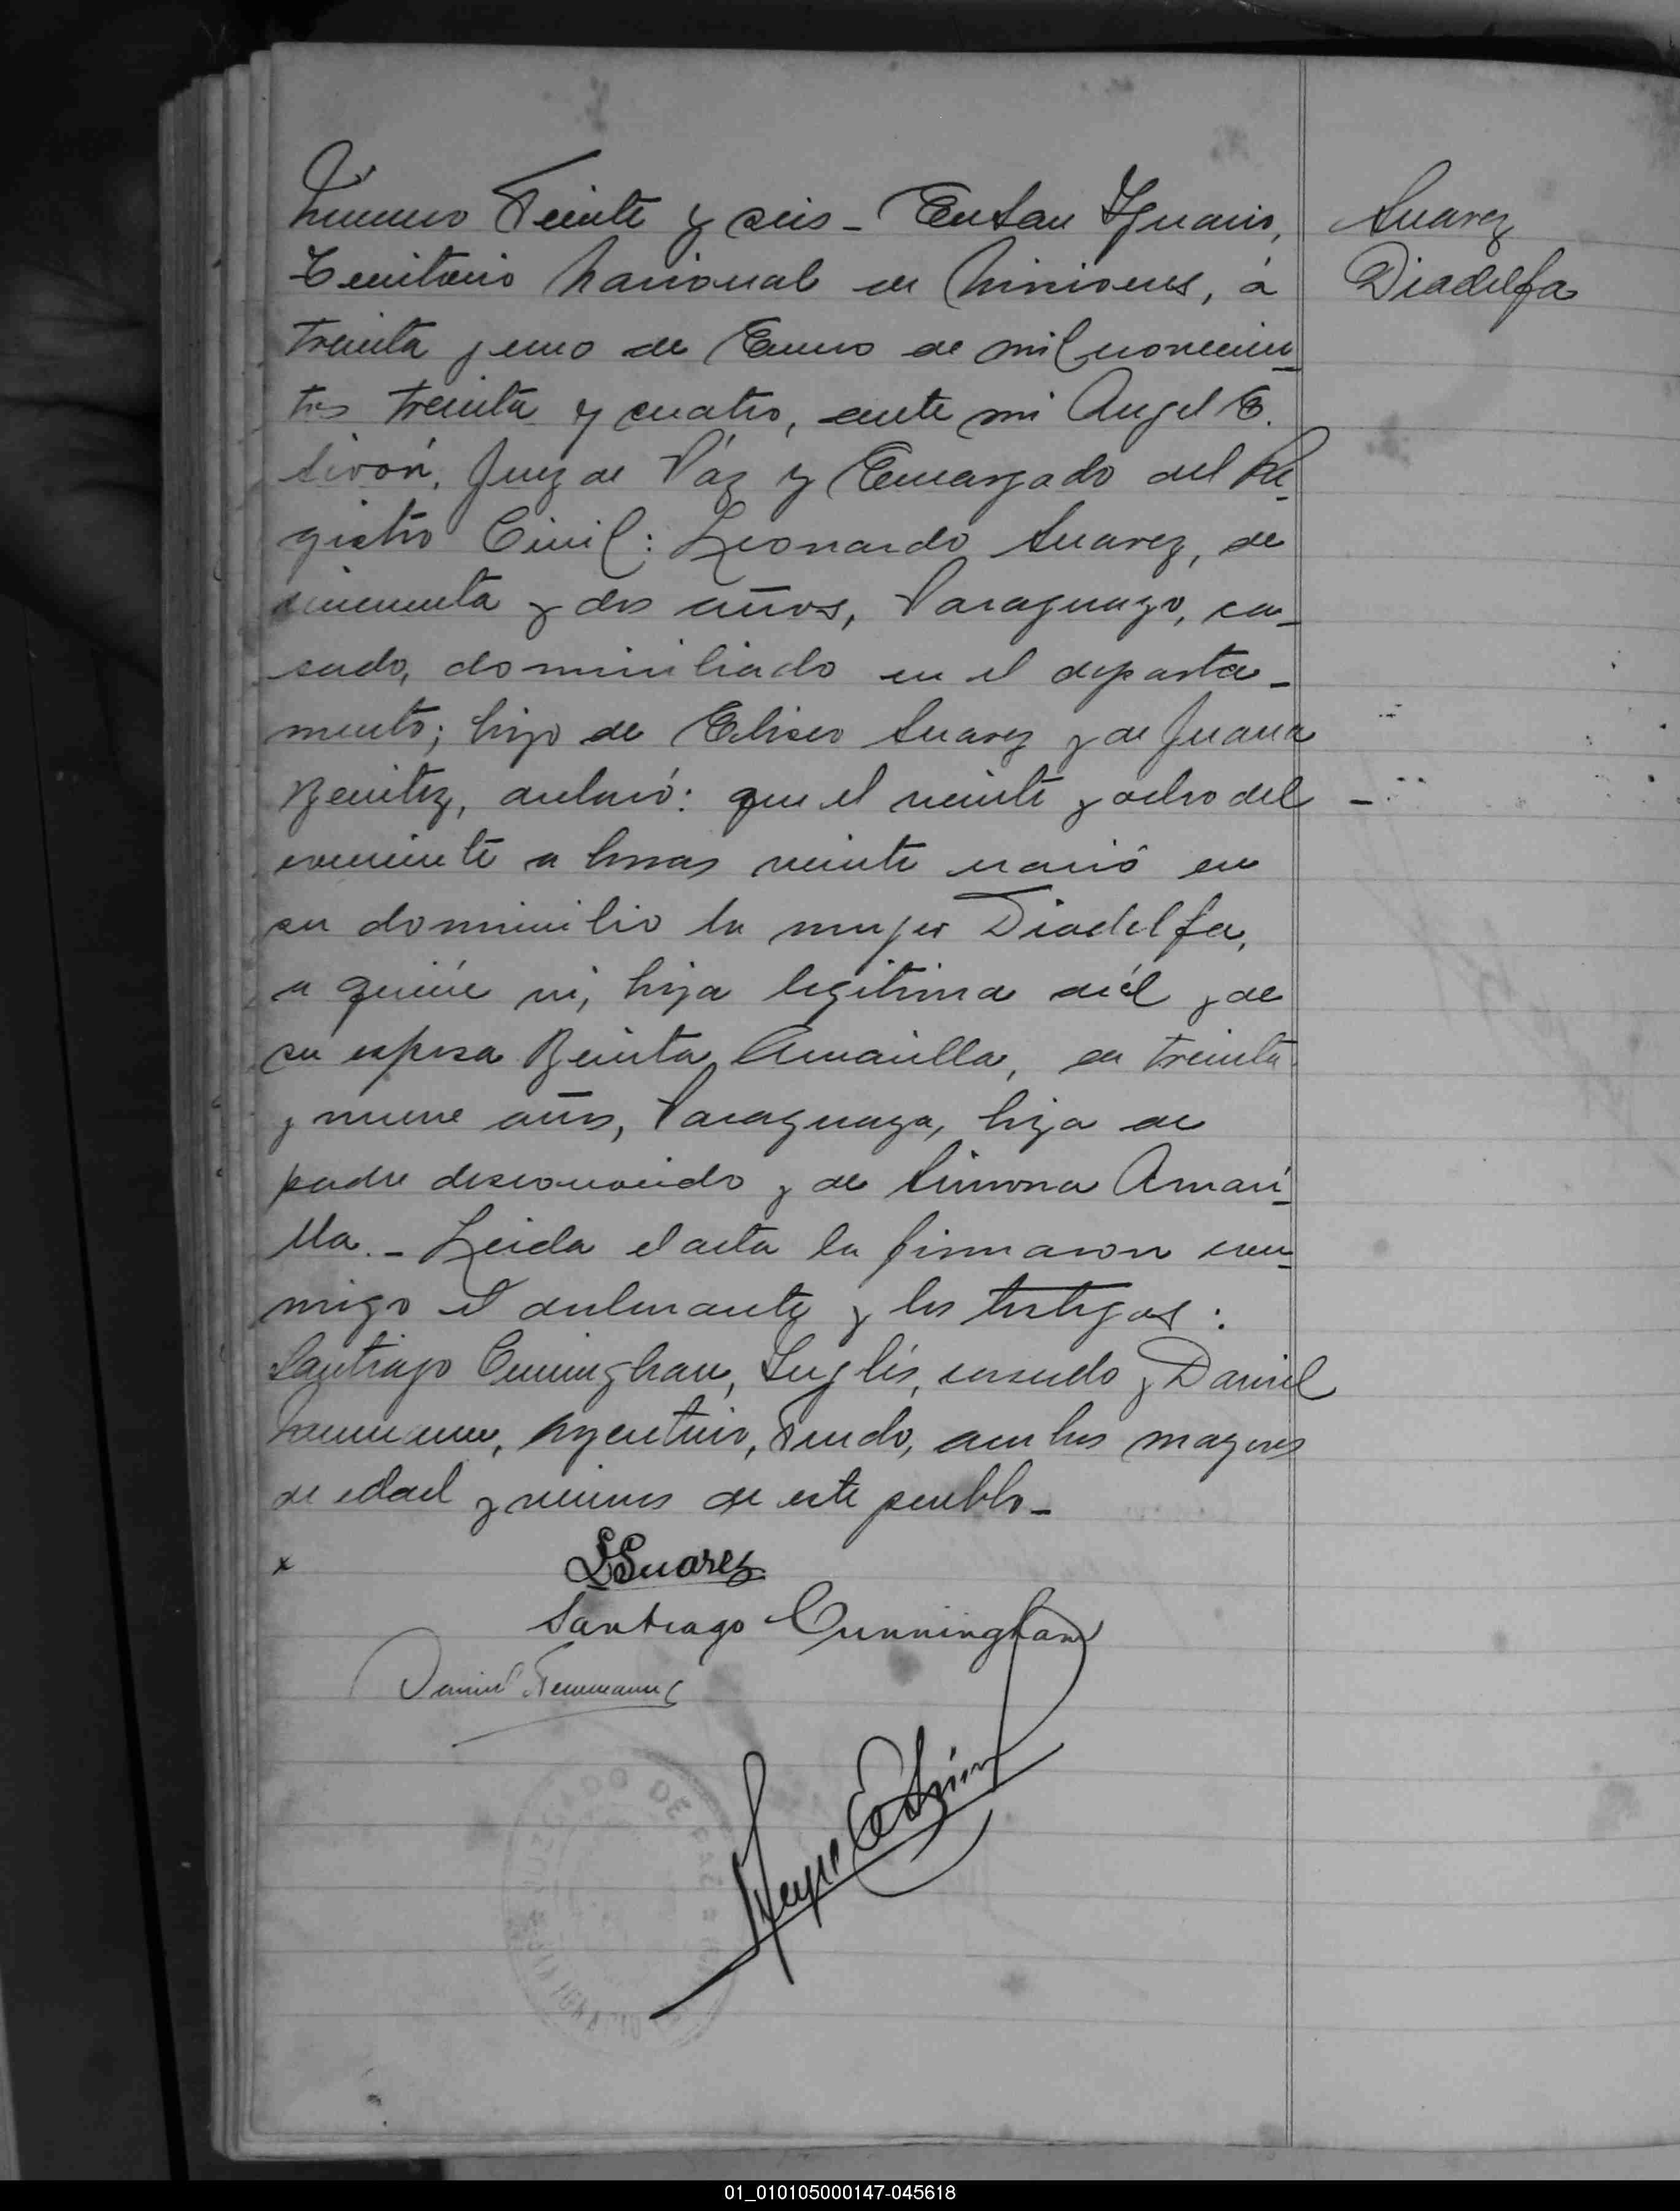 Número Veinte y seis - En San Ygnacio,
Territorio Nacional de Misiones, á
treinta y uno de Enero de mil novecien-
tos treinta y cuatro, ante mi Angel E.
Sirón, Juez de Páz y Encargado del Re-
gistro Civil: Leonardo Suarez, de
cincuenta y dos años, Paraguayo, ca-
sado, domiciliado en el departa-
mento; hijo de Eliseo Suarez y de Juana
Benitez, declaró: que el veinte y ocho del
corriente a horas veinte nació en
su domicilio la mujer Diadelfa,
a quien ví, hija legitima de él y de
su esposa Benita Amarilla, de treinta
y nueve años, Paraguaya, hija de
padre desconocido y de Simona Amari-
lla. - Leida el acta la firmaron con-
migo el declarante y los testigos:
Santiago Cuninghan, Inglés, casado y Daniel
Neumann, Argentino, Viudo, ambos mayores
de edad y vecinos de este pueblo -
x
LSuarez
Santiago Cunningham
Daniel Neumann
Angel E Sirón
JUZGADO DE PAZ
IGNACIO
Suarez
Diadelfa
01_010105000147-045618